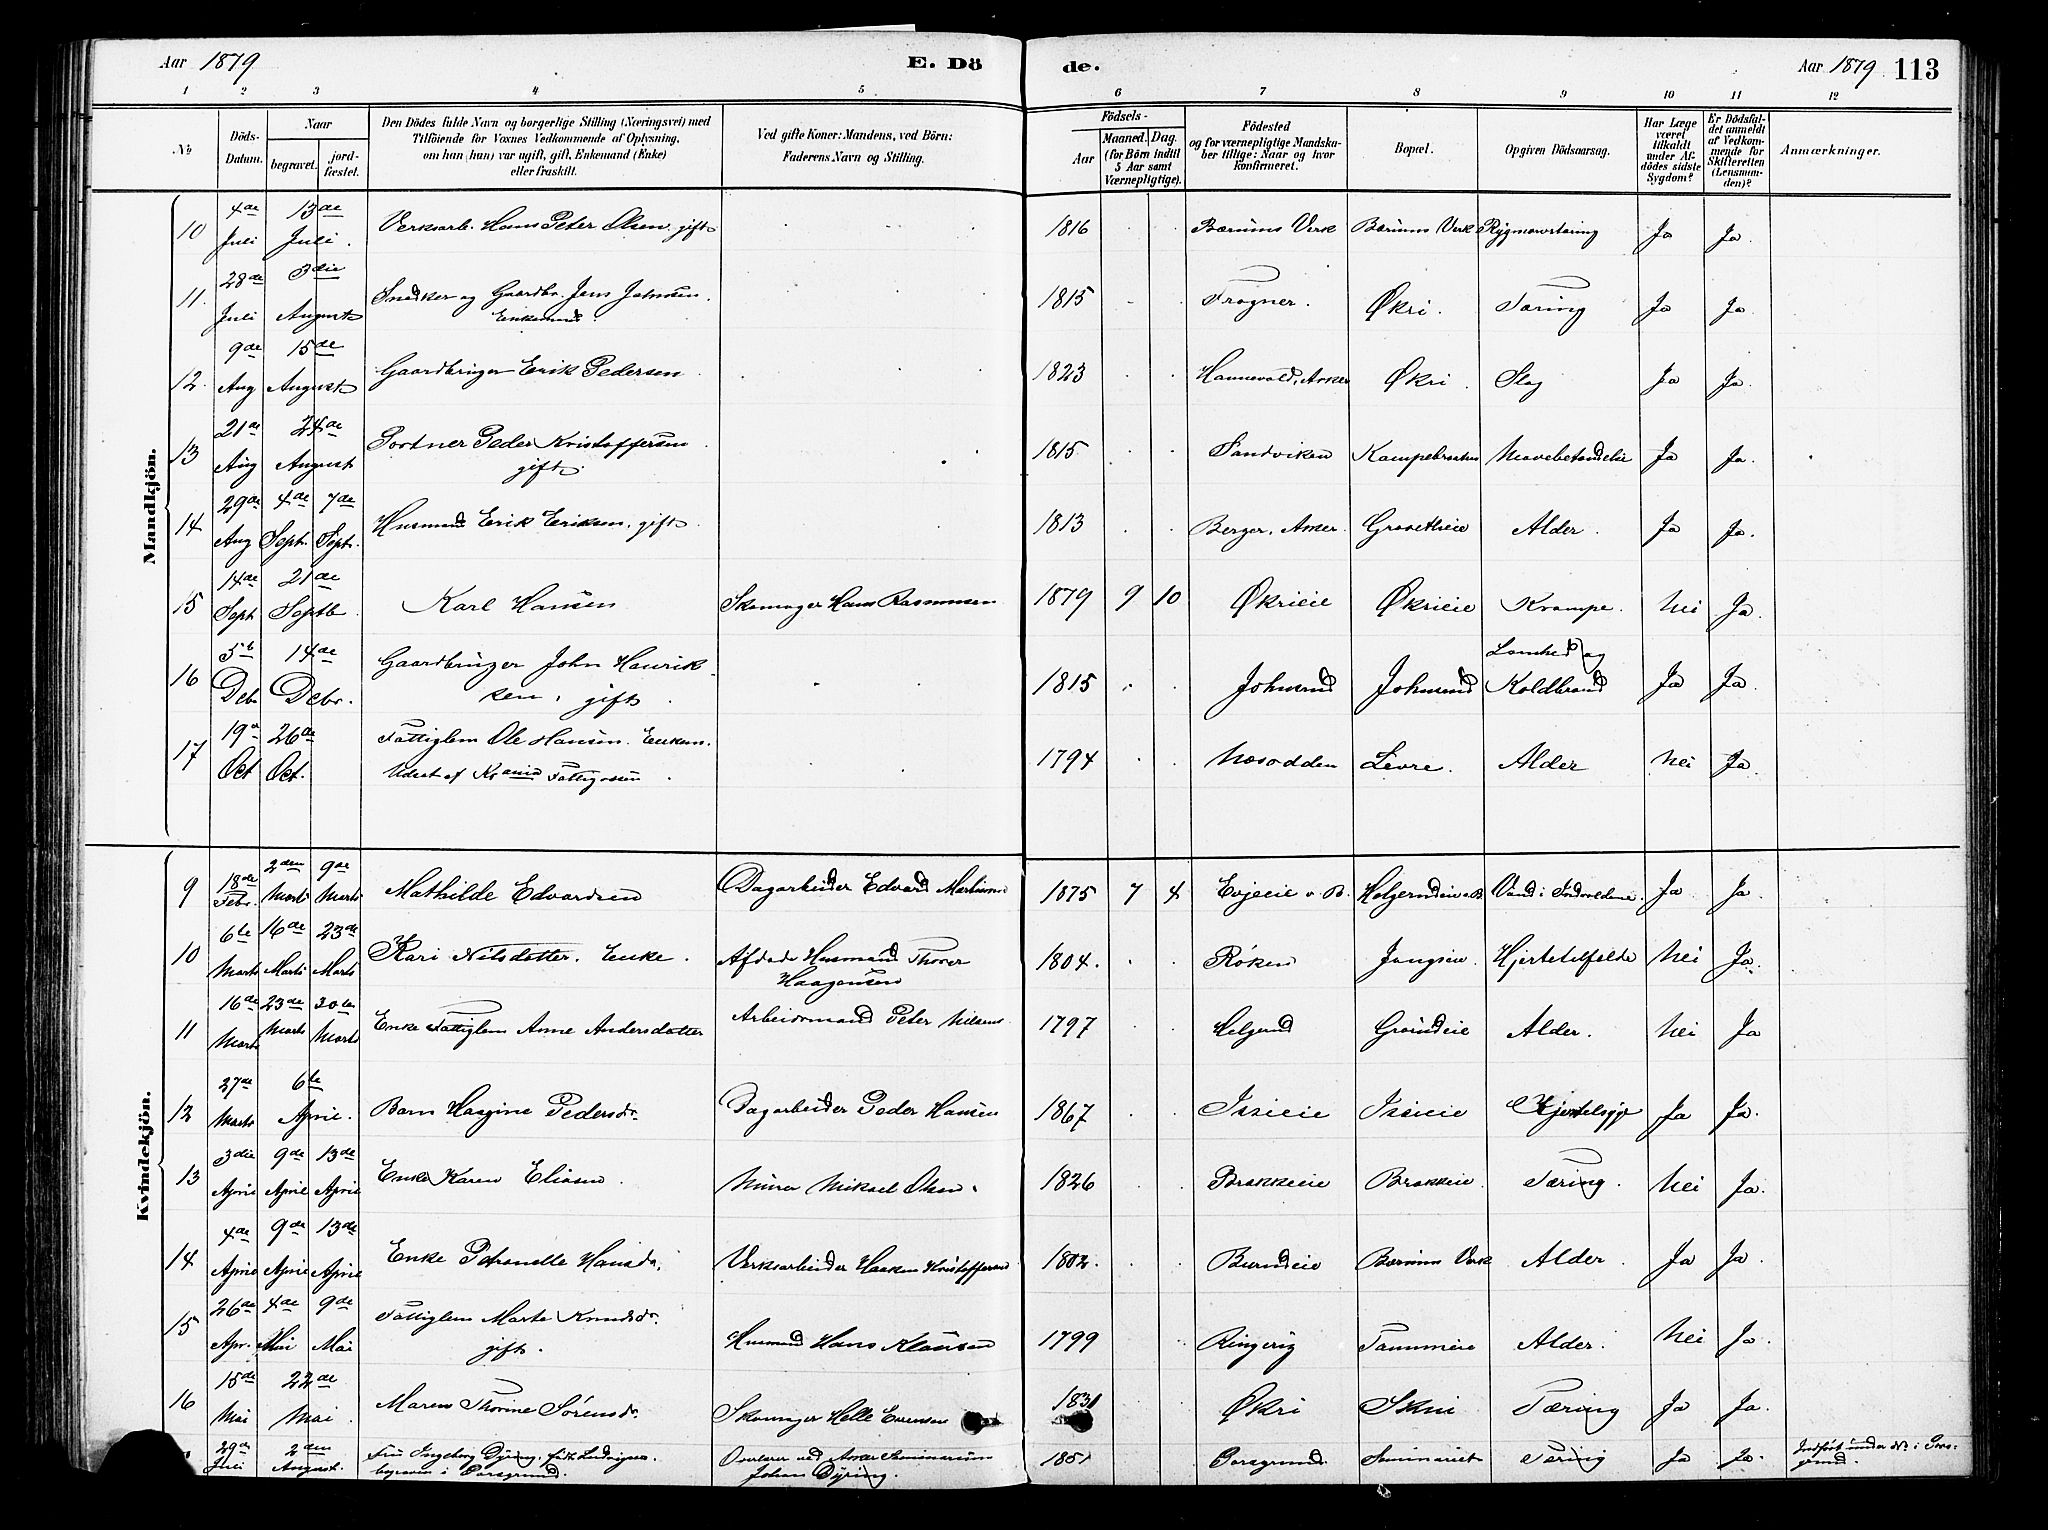 Aar 1879 E. Dö de. Aar 1879 113
1 2 3 4 5 6 7 8 9 10 11 12
No
Döds-Datum.
Naar
begravet.
jord-fæstet.
Den Dödes fulde Navn og borgerlige Stilling (Næringsvei) med
Tilföiende for Voxnes Vedkommende af Oplysning,
om han (hun) var ugift, gift, Enkemand (Enke)
eller fraskilt.
Ved gifte Koner: Mandens, ved Börn:
Faderens Navn og Stilling.
Födsels-
Aar
Maaned. Dag.
(for Börn indtil
5 Aar samt
Værnepligtige).
Födested
og for værnepligtige Mandska-
ber tillige: Naar og hvor
konfirmeret.
Bopæl.
Opgiven Dödsaarsag.
Har Læge
været
tilkaldt
under Af-
dödes sidste
Sygdom?
Er Dödsfal-
det anmeldt
af Vedkom-
mende for
Skifteretten
(Lensman-
den)?
Anmærkninger.
Mandkjön.
10 4de Juli 13de Juli. Verksarb. Hans Peter Olsen gift 1816 Bærums Verk Bærums Verk Rygmarvstæring Ja Ja.
11. 28de Juli 3die August Snedker og Gaardbr. Jens Johnsen.
Enkemand. 1815 Frogner. Økri. Tæring Ja Ja.
12. 9de Aug 15de August Gaardbruger Erik Pedersen 1823 Hannevold, Asker Økri. Slag Ja Ja.
13 21de Aug 24de August Portner Peder Kristoffersen
gift. 1815 Sandviken Kampebraaten Mavebetændelse Ja Ja.
14 29de Aug 4de Sept. 7de Sept. Husmand Erik Eriksen, gift 1813 Berger, Asker Alder. Ja Ja.
15 14de Sept 21de Septb. Karl Hansen Skomager Hans Rasmussen 1879 9 10 Økrieie Økrieie Krampe. Nei Ja.
16 5te Debr 14de Debr. Gaardbruger John Henrik-
sen, gift 1815 Johnsrud Johnsrud Lamhed og
Koldbrand Ja Ja.
17 19de Oct 26de Oct. Fattiglem Ole Hansen. Enkem.
Udsat af Kr.ania Fattigvæsen 1794 Næsodden Levre. Alder Nei Ja.
Kvindekjön.
9 18de Febr. 2den Marts 9de Marts Mathilde Edvardsen Dagarbeider Edvard Martinsen 1875 7 4 Evjeeie v. B. Vand i Indvoldene. Ja Ja.
10 6te Marts 16de Marts 23de Marts Kari Nilsdatter. Enke. Afdøde Husmand Thorer
Haagensen 1804. Røken Jongseie. Hjertetilfælde Nei Ja.
11 16de Marts 23de Marts 30te Marts Enke Fattiglem Anne Andersdatter Arbeidsmand Peter Nilsens 1797 Helgerud Grinieie Alder. Nei Ja
12 27de Marts 6te April. Barn Haagine Pedersdr. Dagarbeider Peder Hansen 1867 Isieie Isieie Hjertesyge Ja Ja.
13 3die April 9de April 13de April Enke Karen Eliasen Murer Mikael Olsen. 1826 Brakkeie Brakkeie Tæring. Nei Ja.
14 4de April 9de April 13de April Enke Petronelle Hansdr. Verksarbeider Haaken Kristoffersen 1802. Burudeie Bærums Verk Alder. Ja Ja.
15 26de Apr. 4de Mai 9de Mai Fattiglem Marte Knudsdr.
gift. Husmand Hans Klausen 1799 Ringerig Tanumeie Alder. Nei Ja.
16 15de Mai 22de Mai. Maren Thorine Sørensdr. Skomager Helle Evensen 1831 Økri Skui Tæring Ja Ja.
29de Juli 2den August. Fru Ingeborg Dyring, født Ludvigsen
begraven i Porsgrund. Overlærer ved Asker Seminarium
Johan Dyring. 1851 Porsgrund. Seminariet Tæring Ja Ja. Indført under No. i Pors-
grund.